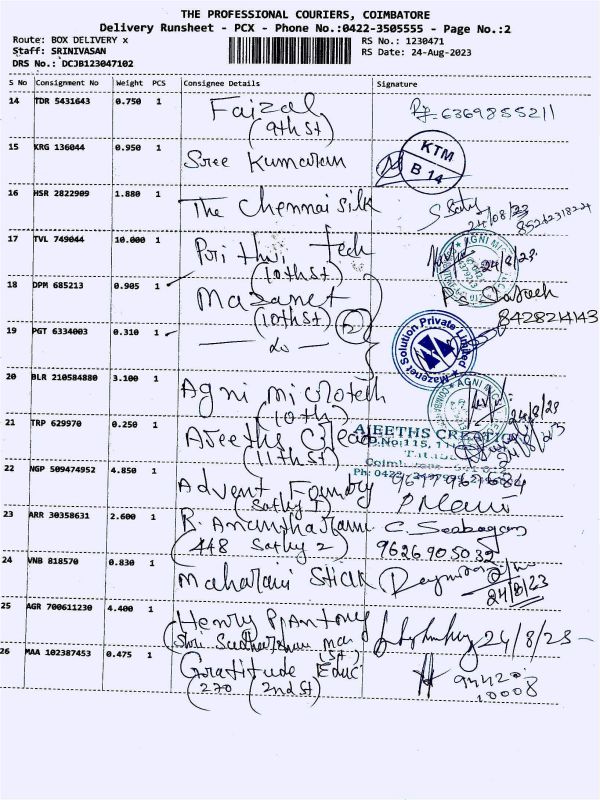 THE PROFESSIONAL COURIERS, COIMBATORE
Delivery Runsheet - PCX - Phone No.:0422-3505555 - Page No.:2
Route: BOX DELIVERY x RS No.: 1230471
Staff: SRINIVASAN RS Date: 24-Aug-2023
DRS No.: DCJB123047102
S No Consignment No Weight PCS Consignee Details Signature
14 TDR 5431643 0.750 1 Faizal 6369855211
(9th St)
15 KRG 136044 0.950 1 Sree Kumaran KTM
B 14
16 HSR 2822909 1.880 1 The Chennai Silk
24/08/23
17 TVL 749044 10.000 1 Prithvi Tech 24/8/23
(10th St)
18 DPM 685213 0.905 1 Mazanet
(10th St) 2 8428214143
19 PGT 6334003 0.310 1 do Mazenet Solution Private Limited
20 BLR 210584880 3.100 1 Agni microtech AGNI
(10th) 24/8/23
21 TRP 629970 0.250 1 Ajeeths Creat AJEETHS CREATI
(11th St) 24/8/23
22 NGP 509474952 4.850 1 Advent Foundry
(Sathy 1)
23 ARR 30358631 2.600 1 R. Anantharami
(448 Sathy 2) 9626905032
24 VNB 818570 0.830 1 Maharani Stick
24/8/23
25 AGR 700611230 4.400 1 Henry P Antony 24/8/23
26 MAA 102387453 0.475 1 Gratitude Educ 94420
(270 (2nd St) 10008